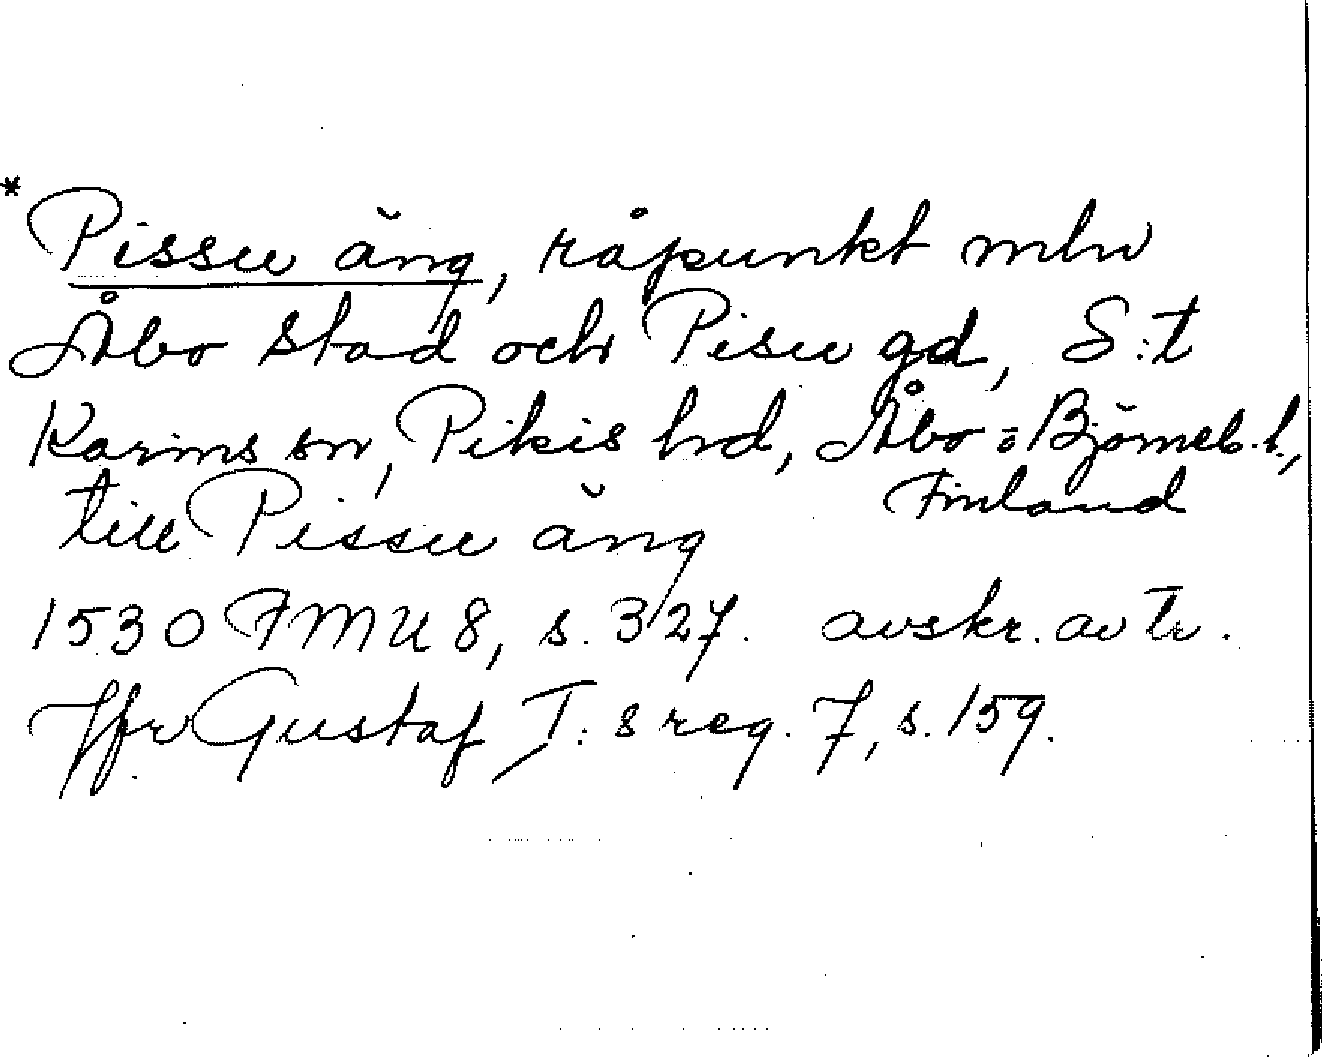 * Pissu äng, råpunkt mlm
Åbo stad och Pisu gd, S:t
Karins sn, Pikis hd, Åbo o Björneb. l.,
Finland
till Pissu äng
1530 FMU 8, s. 327. avskr. av tr.
Jfr Gustaf I:s reg. 7, s. 159.